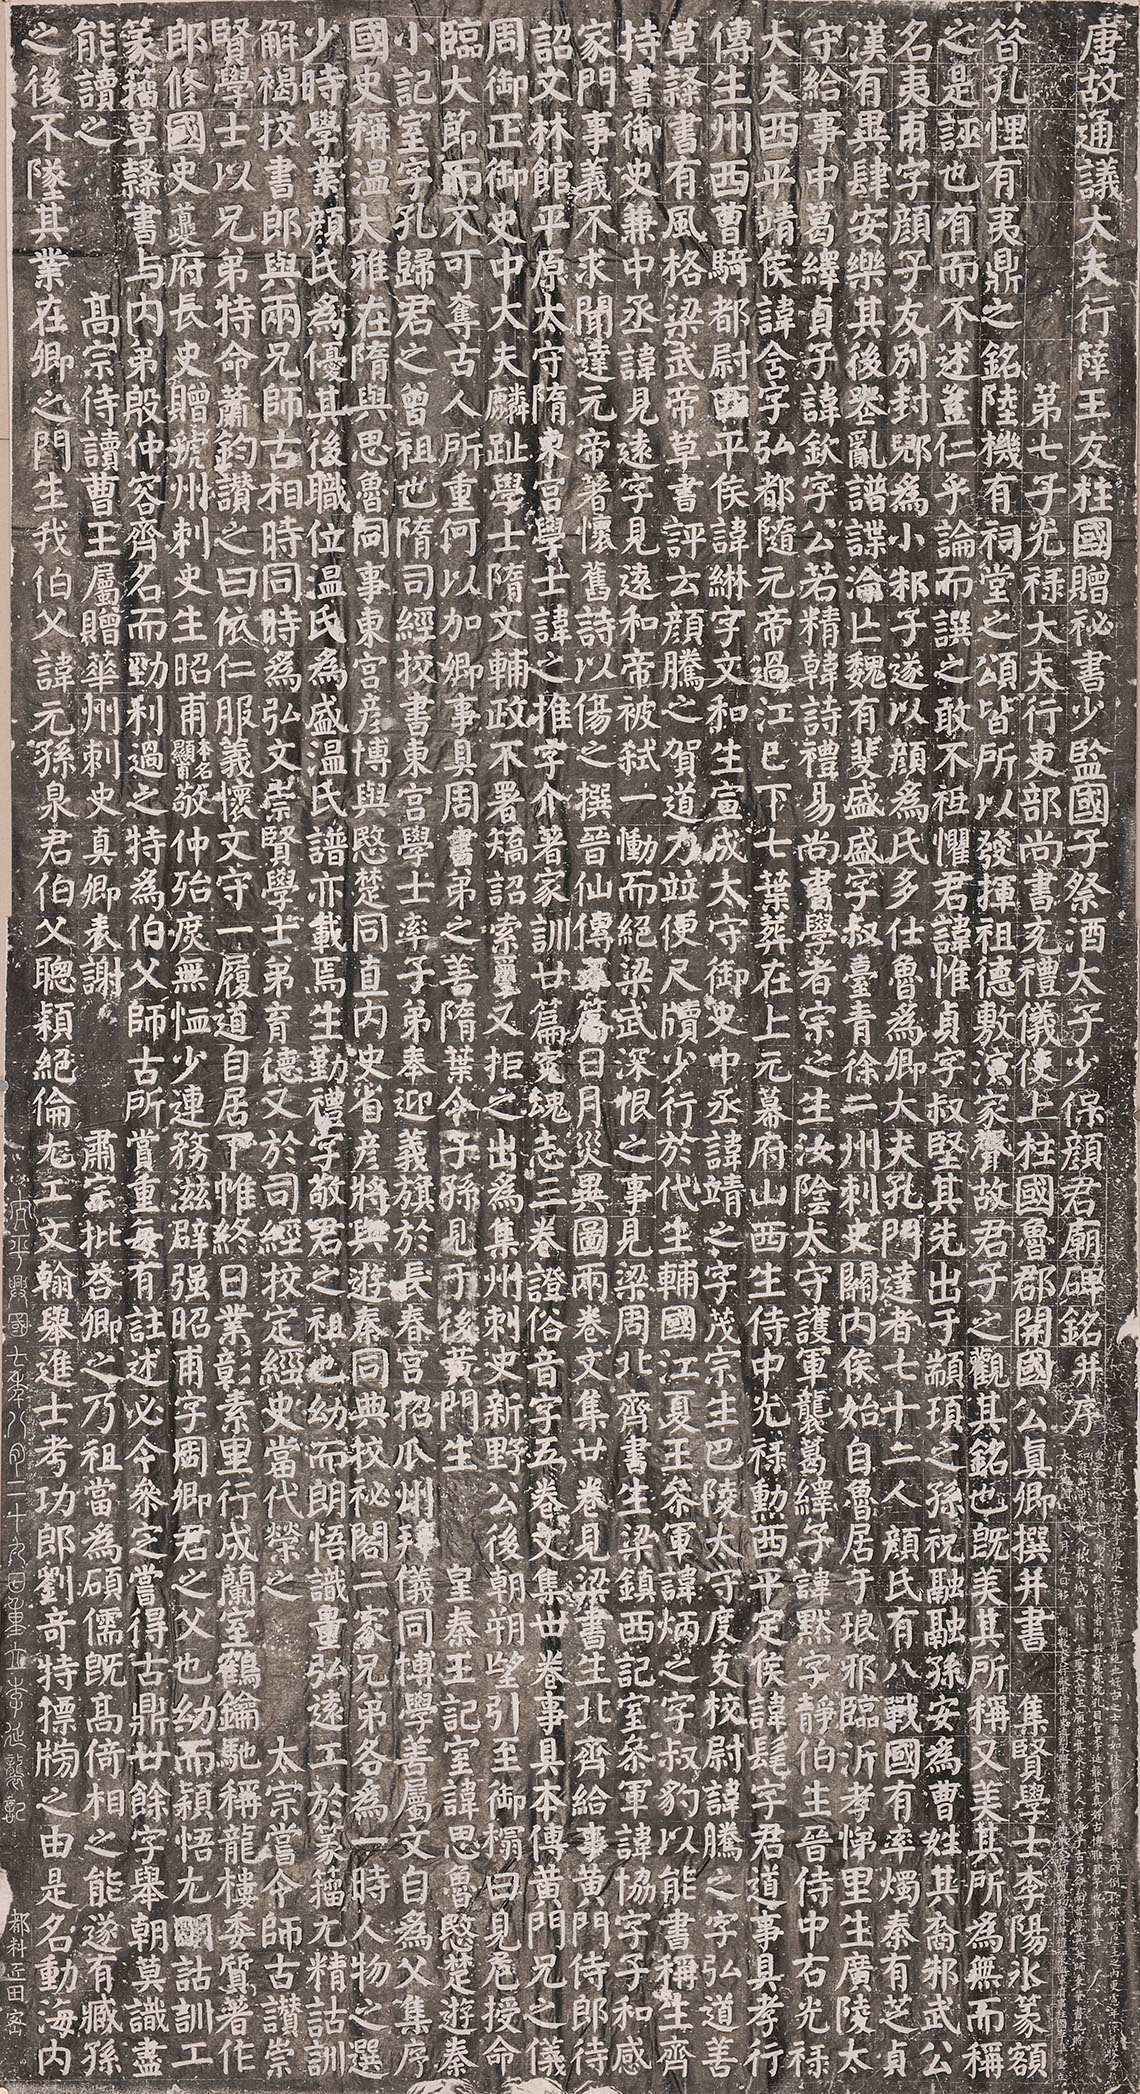 唐故通議大夫行薛王友柱國贈秘書少監國子祭酒太子少保顏君廟碑銘并序
第七子光祿大夫行吏部尚書充禮儀使上柱國魯郡開國公真卿撰并書 集賢學士李陽冰篆額
昝孔悝有夷鼎之銘陸機有祠堂之頌皆所以發揮祖德敷演家聲故君子之觀其銘也既美其所稱又美其所為無而稱
之是誣也有而不述豈仁乎論而譔之敢不祗懼君諱惟貞字叔堅其先出于顓頊之孫祝融融孫安為曹姓其裔邾武公
名夷甫字顏子友別封郳為小邾子遂以顏為氏多仕魯為卿大夫孔門達者七十二人顏氏有八戰國有率燭秦有芝貞
漢有異肆安樂其後喪亂譜諜淪亡魏有斐盛盛字叔臺青徐二州刺史關內侯始自魯居于琅邪臨沂孝悌里生廣陵太
守給事中葛繹貞子諱欽字公若精韓詩禮易尚書學者宗之生汝陰太守護軍襲葛繹子諱默字靜伯生晉侍中右光祿
大夫西平靖侯諱含字弘都隨元帝過江已下七葉葬在上元幕府山西生侍中光祿勳西平定侯諱髦字君道事具孝行
傳生州西曹騎都尉西平侯諱綝字文和生宣成太守御史中丞諱靖之字茂宗生巴陵太守度支校尉諱騰之字弘道善
草隸書有風格梁武帝草書評云顏騰之賀道力並便尺牘少行於代生輔國江夏王參軍諱炳之字叔豹以能書稱生齊
持書御史兼中丞諱見遠字見遠和帝被弒一慟而絕梁武深恨之事見梁周北齊書生梁鎮西記室參軍諱協字子和感
家門事義不求聞達元帝著懷舊詩以傷之撰晉仙傳五篇日月災異圖兩卷文集廿卷見梁書生北齊給事黃門侍郎待
詔文林館平原太守隋東宮學士諱之推字介著家訓廿篇冤魂志三卷證俗音字五卷文集卅卷事具本傳黃門兄之儀
周御正御史中大夫麟趾學士隋文輔政不署矯詔索璽又拒之出為集州刺史新野公後朝朔望引至御榻曰見危授命
臨大節而不可奪古人所重何以加卿事具周書弟之善隋葉令子孫見于後黃門生 皇秦王記室諱思魯愍楚遊秦
小記室字孔歸君之曾祖也隋司經挍書東宮學士率子弟奉迎義旗於長春宮招瓜州拜儀同博學善屬文自為父集序
國史稱溫大雅在隋與思魯同事東宮彥博與愍楚同直內史省彥將與遊秦同典挍秘閣二家兄弟各為一時人物之選
少時學業顏氏為優其後職位溫氏為盛溫氏譜亦載焉生勤禮字敬君之祖也幼而朗悟識量弘遠工於篆籀尤精詁訓
解褐挍書郎與兩兄師古相時同時為弘文崇賢學士弟育德又於司經挍定經史當代榮之 太宗嘗令師古讚崇
賢學士以兄弟特命蕭鈞讚之曰依仁服義懷文守一履道自居下帷終日業彰素里行成蘭室鶴鑰馳稱龍樓委質著作
郎修國史夔府長史贈虢州刺史生昭甫本名顯甫敬仲殆庶無恤少連務滋辟强昭甫字周卿君之父也幼而穎悟尤明詁訓工
篆籀草隸書与內弟殷仲容齊名而勁利過之特為伯父師古所賞重每有註述必令參定嘗得古鼎廿餘字舉朝莫識盡
能讀之 高宗侍讀曹王屬贈華州刺史真卿表謝 肅宗批荅卿之乃祖當為碩儒既高倚相之能遂有臧孫
之後不墜其業在卿之門生我伯父諱元孫泉君伯父聰穎絕倫尤工文翰舉進士考功郎劉奇特摽牓之由是名動海內
平興國七年八月二十九日重立李延襲記 都料匠田密